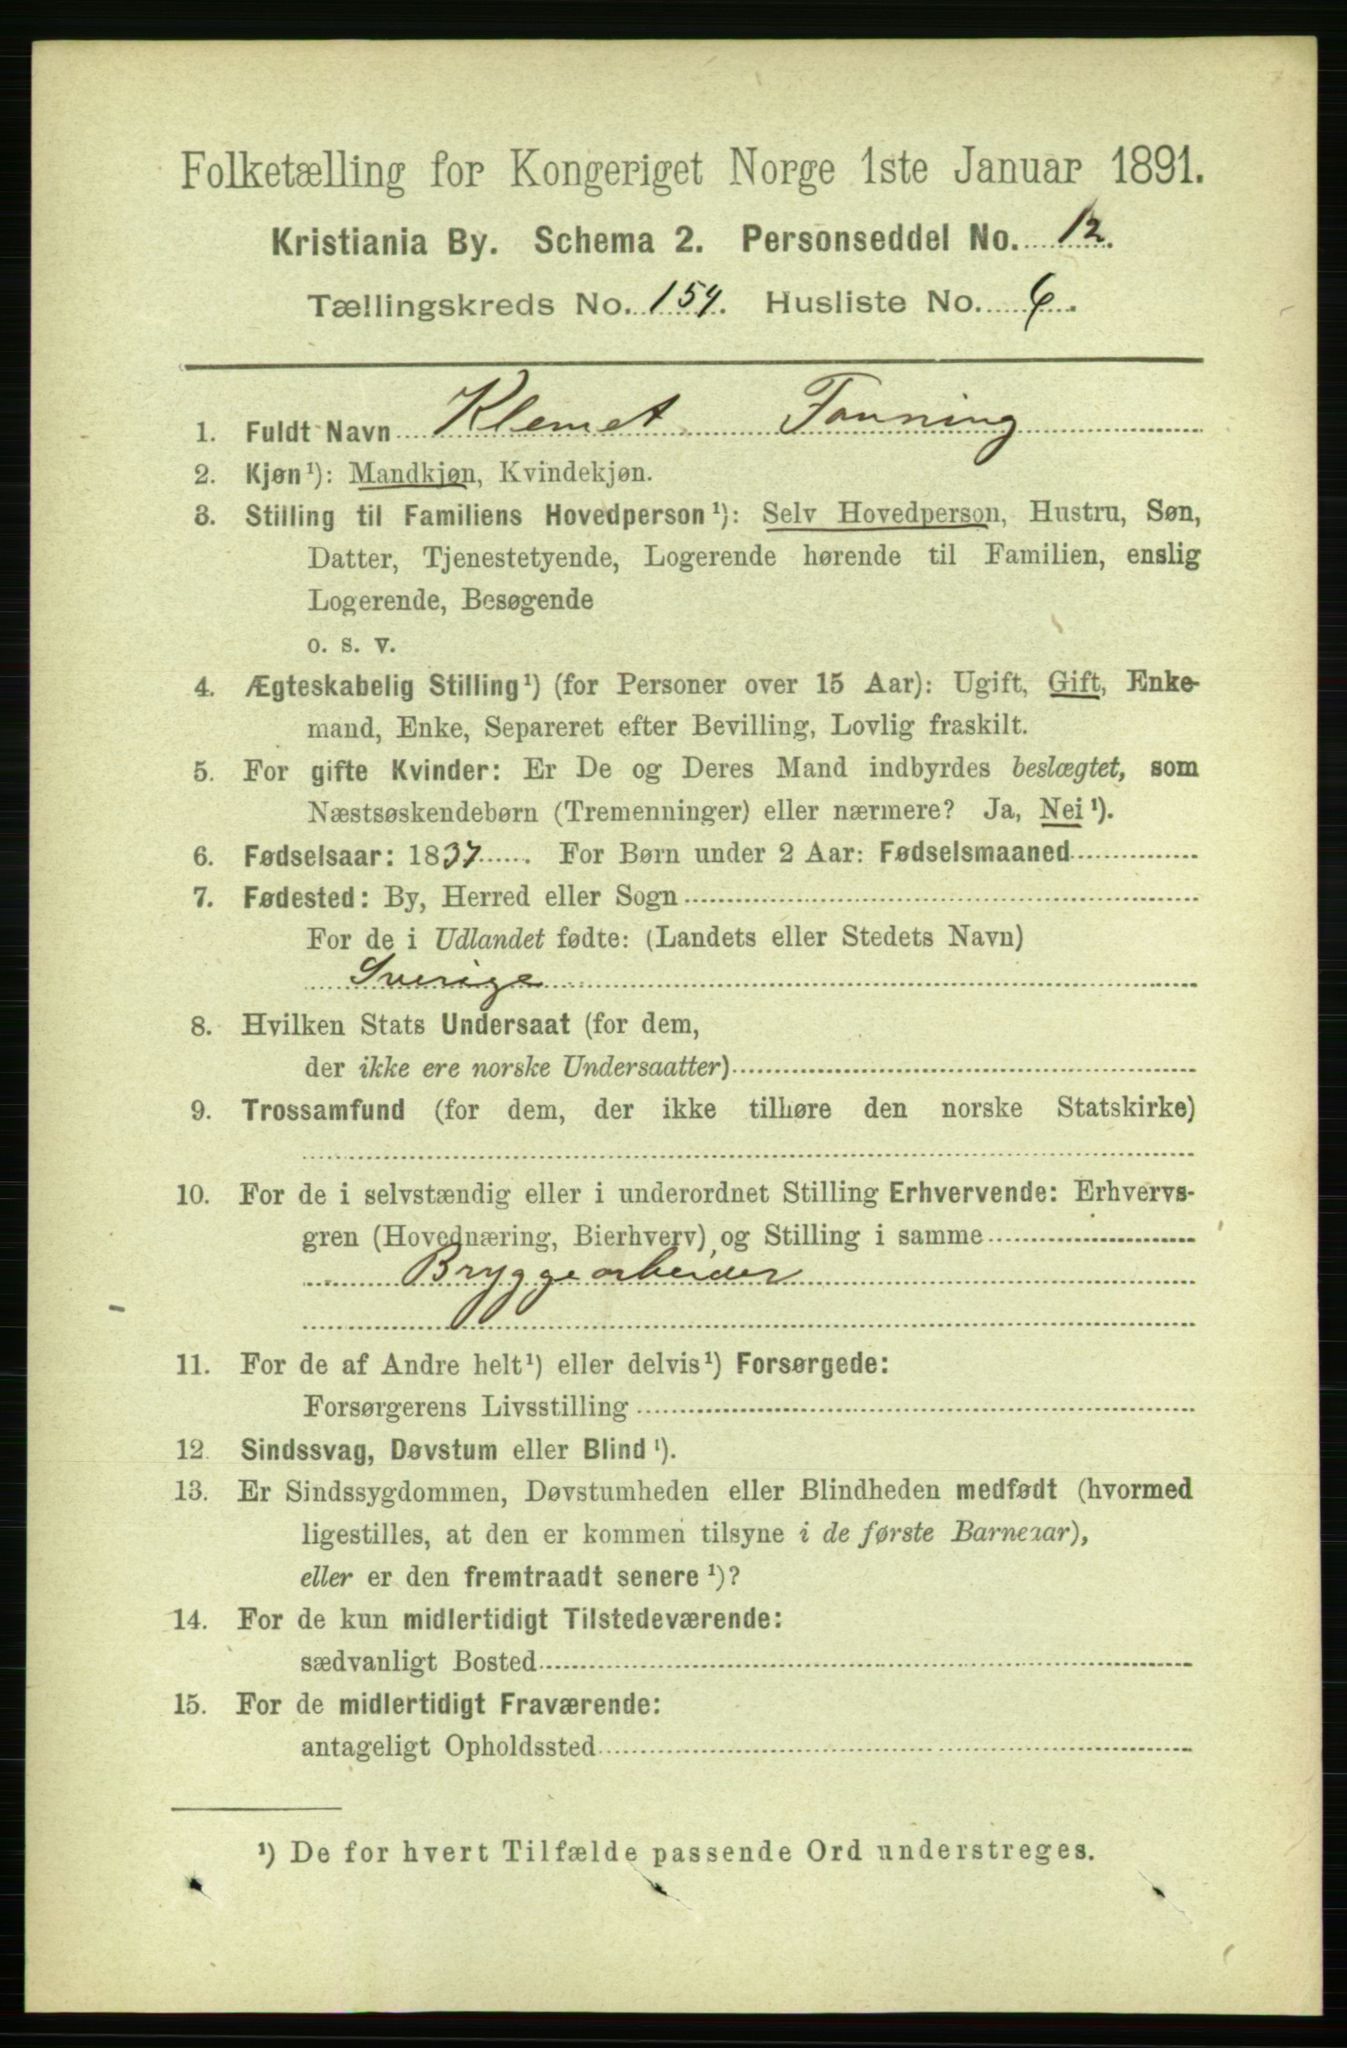 Folketælling for Kongeriget Norge 1ste Januar 1891.
Kristiania By. Schema 2. Personseddel No. 12.
Tællingskreds No. 154. Husliste No. 6.
1. Fuldt Navn Klemet
2. Kjøn¹): Mandkjøn, Kvindekjøn.
3. Stilling til Familiens Hovedperson¹): Selv Hovedperson, Hustru, Søn,
Datter, Tjenestetyende, Logerende hørende til Familien, enslig
Logerende, Besøgende
o. s. v.
4. Ægteskabelig Stilling¹) (for Personer over 15 Aar): Ugift, Gift, Enke-
mand, Enke, Separeret efter Bevilling, Lovlig fraskilt.
5. For gifte Kvinder: Er De og Deres Mand indbyrdes beslægtet, som
Næstsøskendebørn (Tremenninger) eller nærmere? Ja, Nei¹).
6. Fødselsaar: 1837. For Børn under 2 Aar: Fødselsmaaned
7. Fødested: By, Herred eller Sogn
For de i Udlandet fødte: (Landets eller Stedets Navn)
Sverige
8. Hvilken Stats Undersaat (for dem,
der ikke ere norske Undersaatter)
9. Trossamfund (for dem, der ikke tilhøre den norske Statskirke)
10. For de i selvstændig eller i underordnet Stilling Erhvervende: Erhvervs-
gren (Hovednæring, Bierhverv) og Stilling i samme
Bryggearbeider
11. For de af Andre helt¹) eller delvis¹) Forsørgede:
Forsørgerens Livsstilling
12. Sindssvag, Døvstum eller Blind¹).
13. Er Sindssygdommen, Døvstumheden eller Blindheden medfødt (hvormed
ligestilles, at den er kommen tilsyne i de første Barneaar),
eller er den fremtraadt senere¹)?
14. For de kun midlertidigt Tilstedeværende:
sædvanligt Bosted
15. For de midlertidigt Fraværende:
antageligt Opholdssted
¹) De for hvert Tilfælde passende Ord understreges.